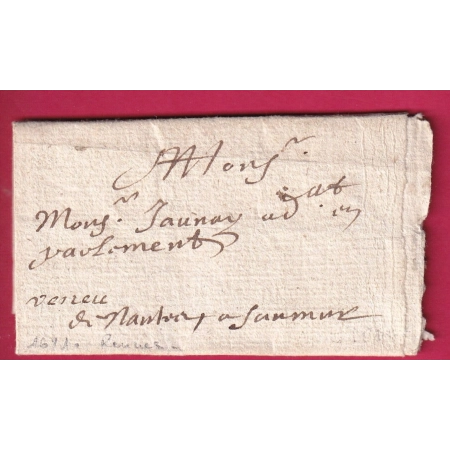 Monsr.
Monsr. Jaunay advat en
parlement
veneu
de Nantes a Saumur
1691 Rennes